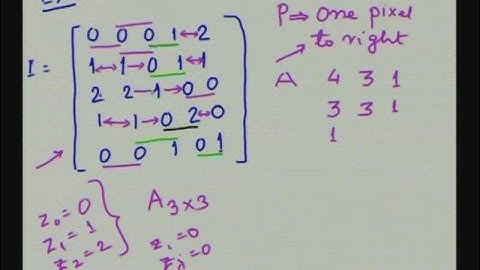 I = 0 0 0 1↔2
1↔1→0 1↔1
2 2→1→0 0
1↔1→0 2↔0
0 0 1 0 1
P⇒ One pixel
to right
A 4 3 1
3 3 1
1
z₀=0
z₁=1
z₂=2
A₃ₓ₃
zᵢ=0
zⱼ=0